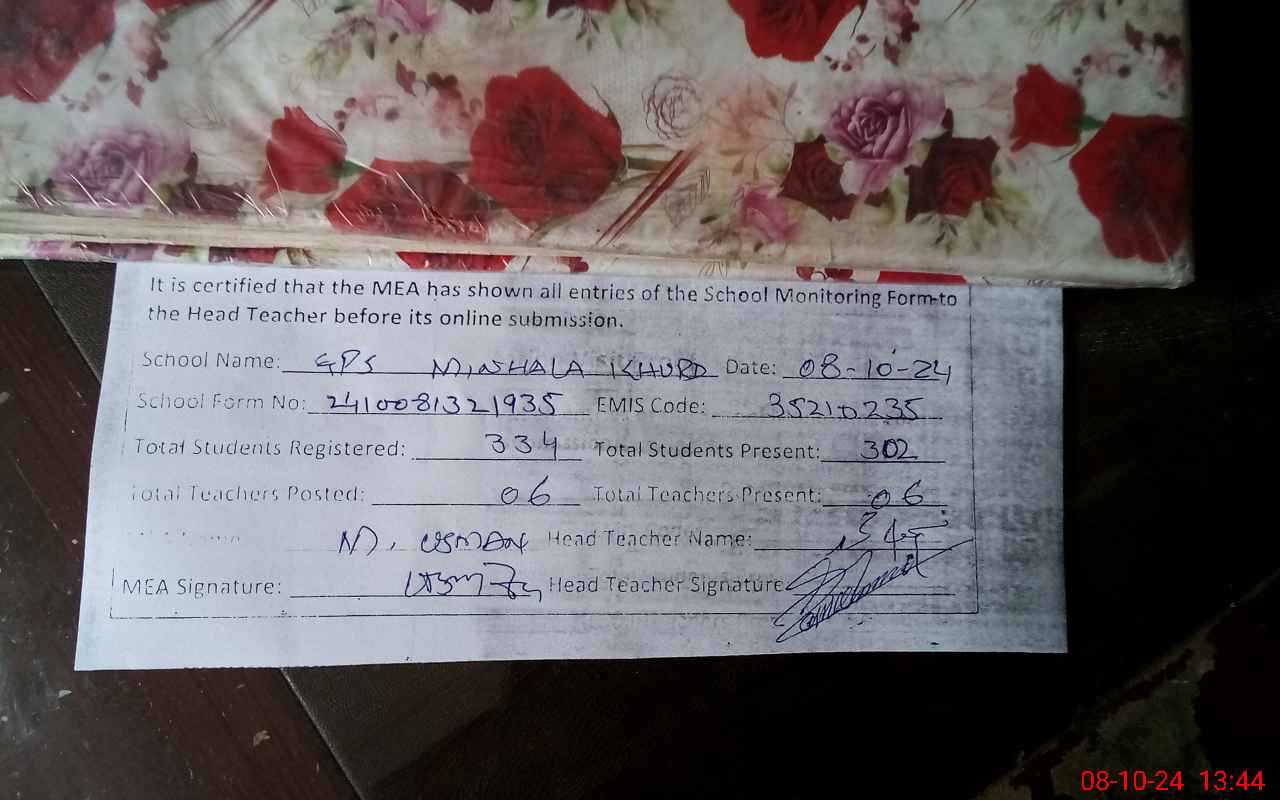 It is certified that the MEA has shown all entries of the School Monitoring Form to
the Head Teacher before its online submission.
School Name: GPS MINHALA KHURD Date: 08-10-24
School Form No: 2410081321935 EMIS Code: 35210235
Total Students Registered: 334 Total Students Present: 302
Total Teachers Posted: 06 Total Teachers Present: 06
M. USMAN Head Teacher Name:
MEA Signature: Head Teacher Signature
08-10-24 13:44